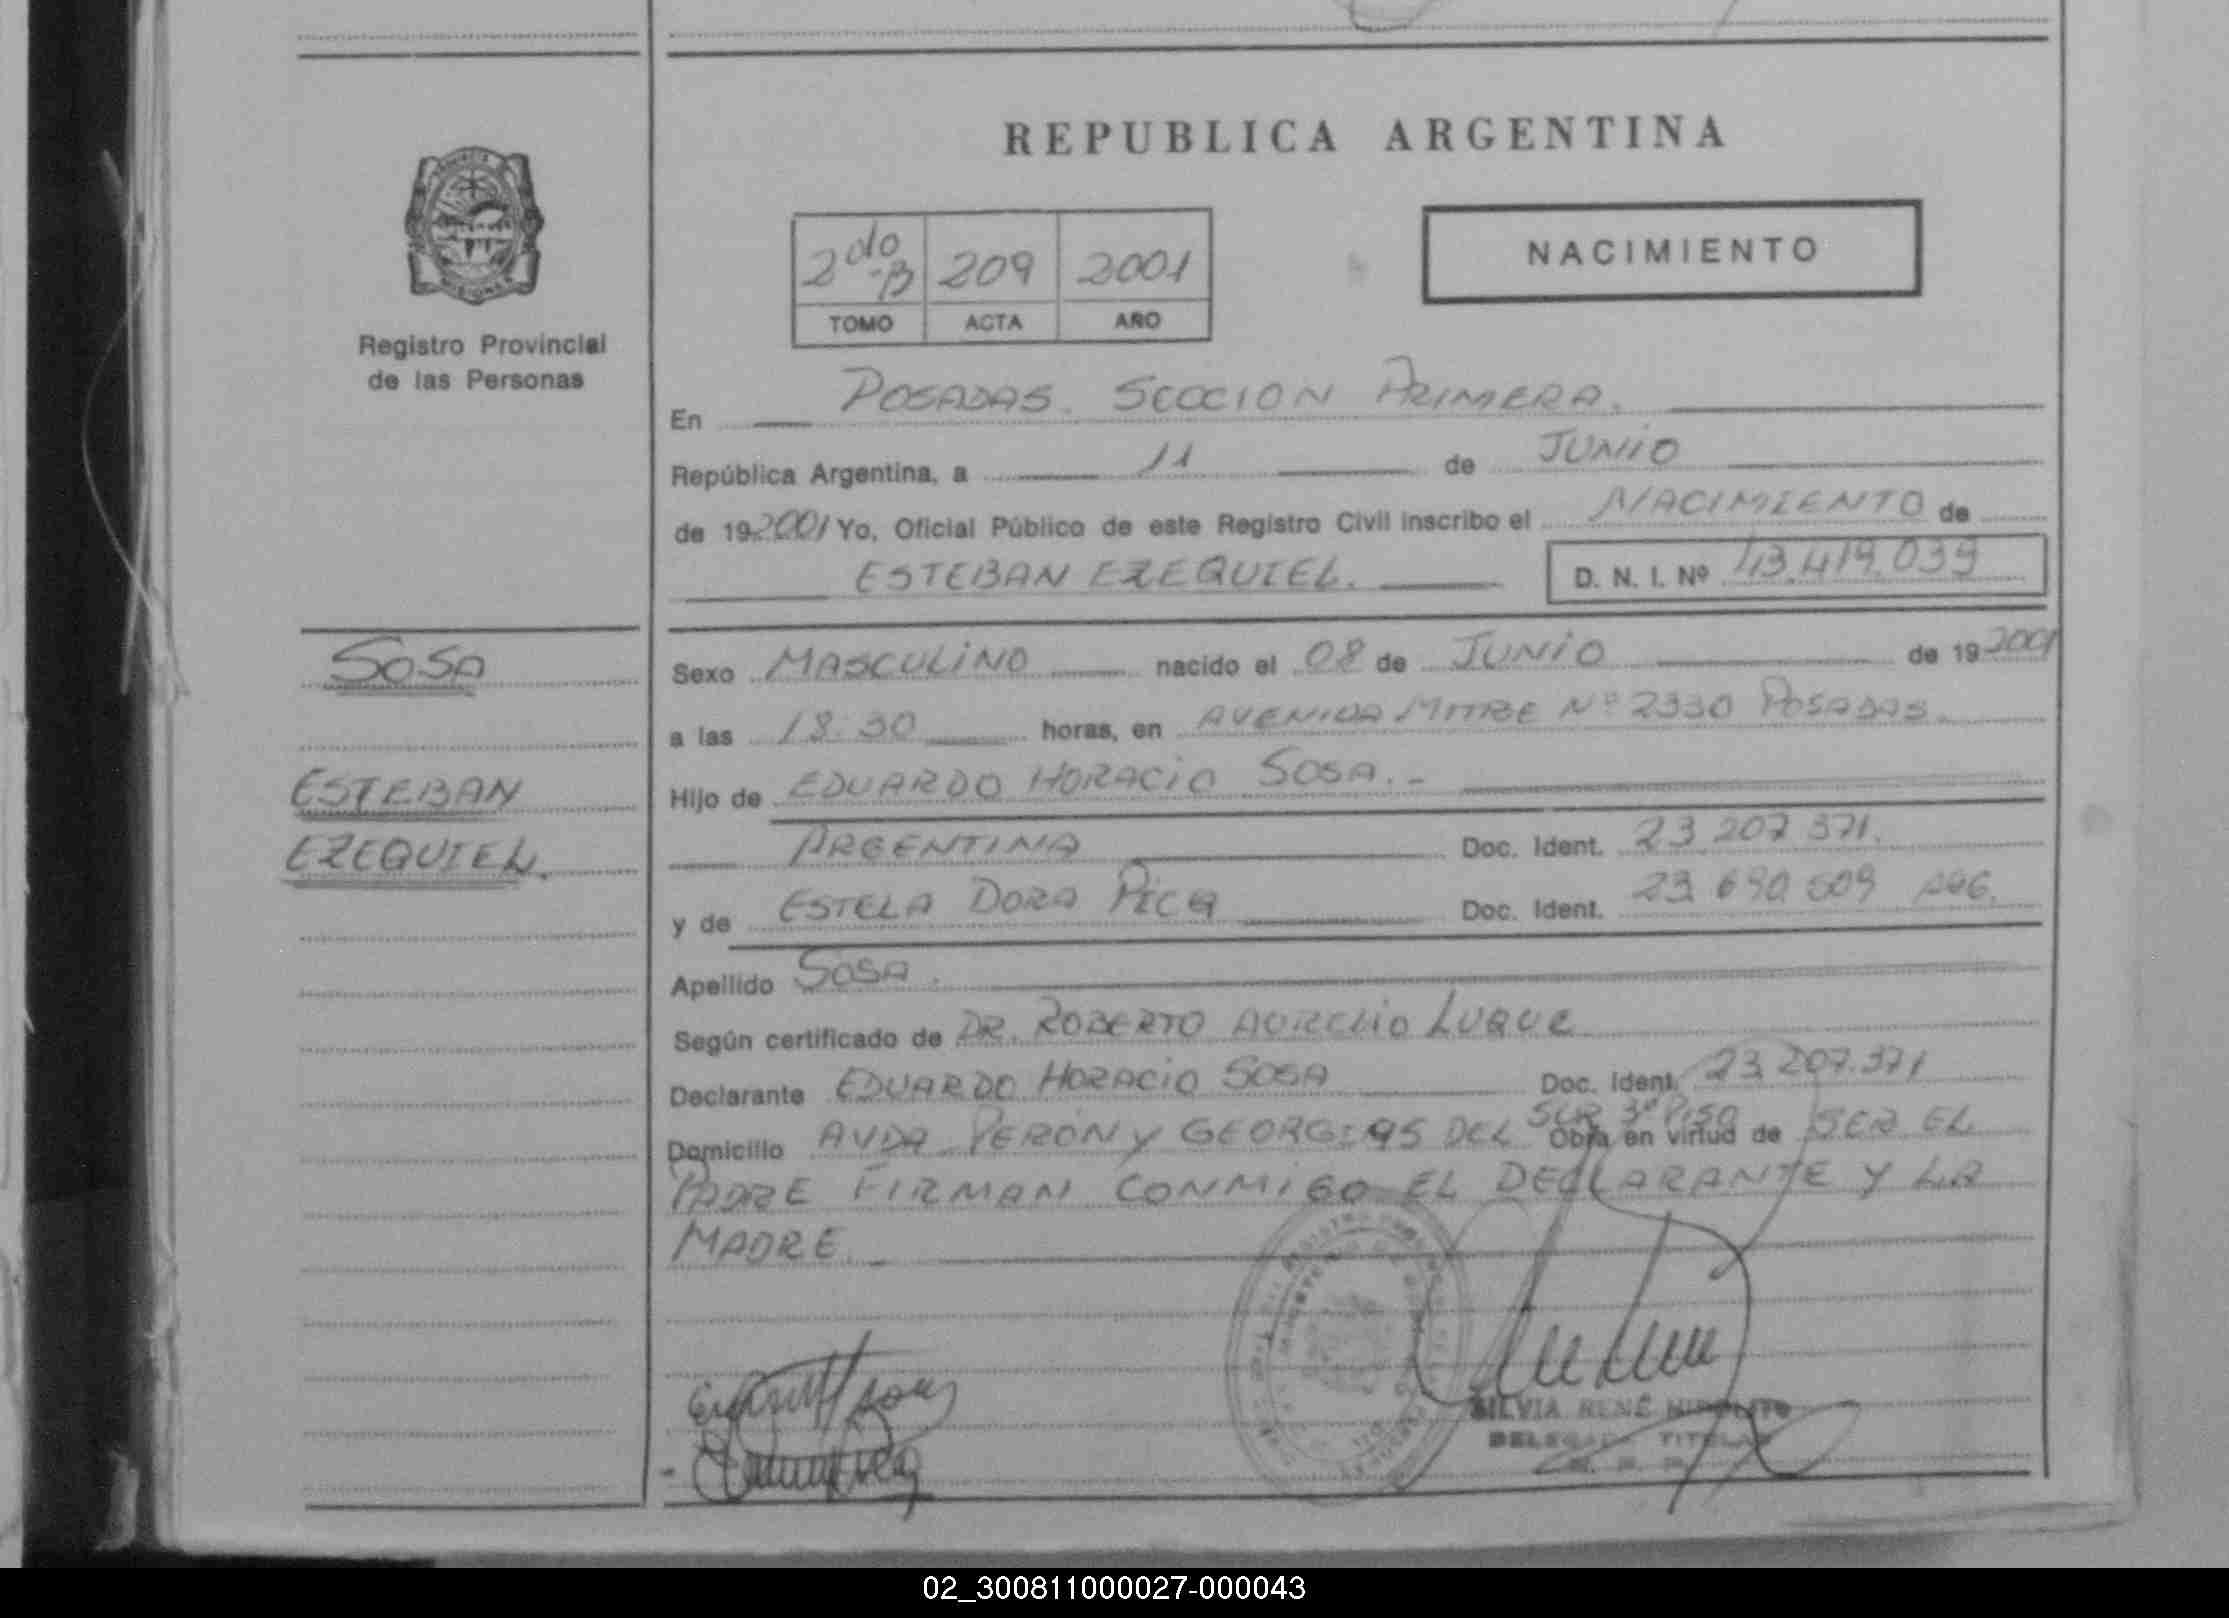 REPUBLICA ARGENTINA
NACIMIENTO
2do -B 209 2001
TOMO ACTA AÑO
Registro Provincial
de las Personas
En POSADAS. SECCION PRIMERA.
República Argentina, a 11 de JUNIO
de 192001 Yo, Oficial Público de este Registro Civil inscribo el NACIMIENTO de
ESTEBAN EZEQUIEL. D. N. I. Nº 43.419.039
SOSA
ESTEBAN
EZEQUIEL.
Sexo MASCULINO nacido el 08 de JUNIO de 192001
a las 18.30 horas, en AVENIDA MITRE Nº 2330 POSADAS.
Hijo de EDUARDO HORACIO SOSA.-
ARGENTINA Doc. Ident. 23 207 371.
y de ESTELA DORA Doc. Ident. 23 690 509 ARG.
Apellido SOSA.
Según certificado de DR. ROBERTO AURELIO LUQUE
Declarante EDUARDO HORACIO SOSA Doc. Ident. 23.207.371
Domicilio AVDA PERÓN Y DEL SUR 3º PISO Obra en virtud de SER EL
PADRE FIRMAN CONMIGO EL DECLARANTE Y LA
MADRE.
SILVIA RENÉ HIPOLITO
DELEGADA TITULAR
02_300811000027-000043